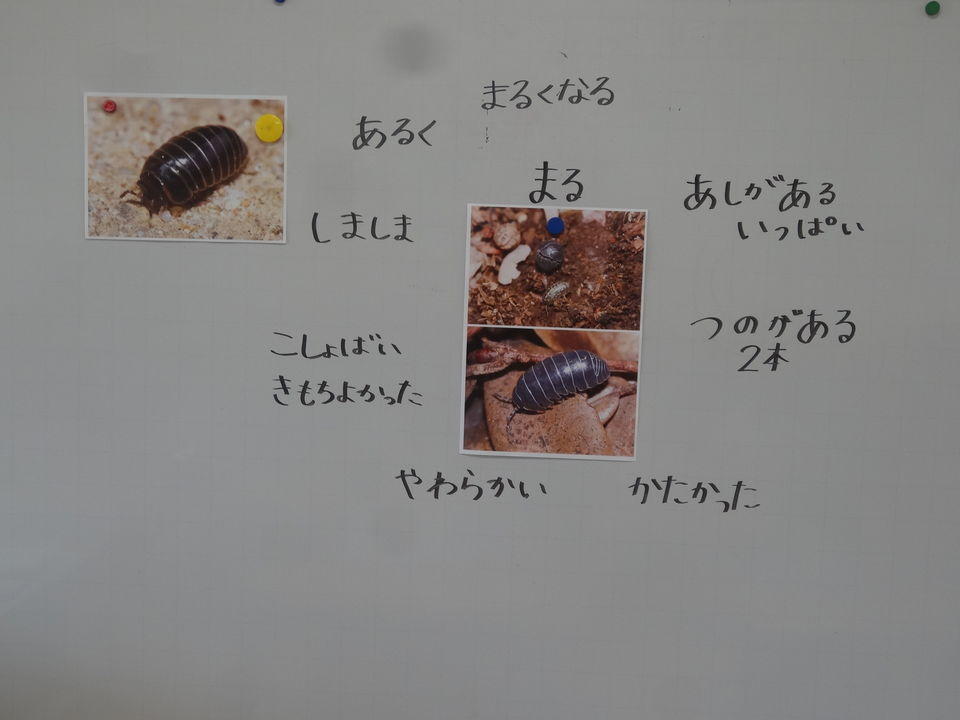 まるくなる
あるく
まる
あしがある
いっぱい
しましま
つのがある
2本
こしょばい
きもちよかった
やわらかい
かたかった